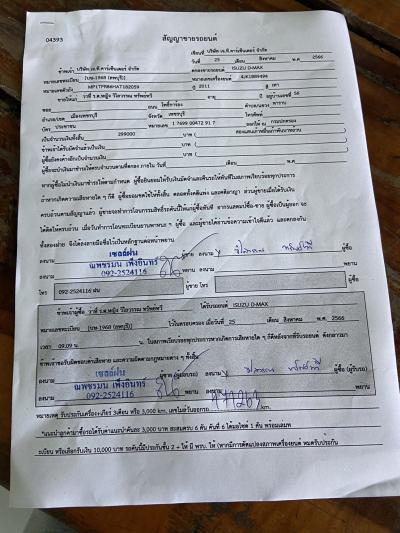 04393
สัญญาขายรถยนต์
เขียนที่ บริษัท เจ.ที.คาร์เซ็นเตอร์ จำกัด
วันที่ 25 เดือน สิงหาคม พ.ศ. 2566
ข้าพเจ้า บริษัท เจ.ที.คาร์เซ็นเตอร์ จำกัด ตกลงขายรถยนต์ ISUZU D-MAX
หมายเลขทะเบียน (บท-1968 (ลพบุรี)) หมายเลขเครื่องยนต์ 4JK1BB9496
หมายเลขตัวถัง MP1TFR86HAT182059 ปี 2011 สี เทา
ขายให้แก่ วาที่ ร.ต.หญิง วิไลวรรณ ทรัพย์ทวี อายุ ปี อยู่บ้านเลขที่ 56
ซอย ถนน โพธิ์ทาทอง ตำบล/แขวง หาราบ
อำเภอ/เขต เมืองเพชรบุรี จังหวัด เพชรบุรี
บัตร ประชาชน หมายเลข 1 7699 00472 91 7 ออกให้ ณ กรมปกครอง
เป็นจำนวนเงินทั้งสิ้น 299000 บาท (
ข้าพเจ้าได้รับมัดจำแล้วเป็นเงิน บาท (
ผู้ซื้อยังคงค้างอีกเป็นจำนวนเงิน บาท (
ผู้ซื้อจะนำเงินมาชำระให้ครบจำนวนตามที่ตกลง ภายใน วันที่ เดือน พ.ศ.
หากผู้ซื้อไม่นำเงินมาชำระให้ตามกำหนด ผู้ซื้อยินยอมให้ริบเงินมัดจำและคืนรถให้ทันทีในสภาพเรียบร้อยทุกประการ
ถ้าหากเกิดความเสียหายใด ๆ ก็ดี ผู้ซื้อยอมชดใช้ให้ทั้งสิ้น ตลอดทั้งคดีแพ่ง และคดีอาญา ส่วนผู้ขายเมื่อได้รับเงิน
ครบถ้วนตามสัญญาแล้ว ผู้ขายจะทำการโอนกรรมสิทธิ์รถคันนี้ให้แก่ผู้ซื้อทันที
ทั้งสองฝ่าย จึงได้ลงลายมือชื่อไว้เป็นหลักฐานต่อหน้าพยาน
ลงนาม ผู้ขาย ลงนาม วิไลวรรณ ทรัพย์ทวี ผู้ซื้อ
เซลล์ฝน
ณพชรมน เฟื่องอินทร์
092-2524116
ลงนาม พยาน
โทร 092-2524116 ฝน ผู้ขาย โทร ผู้ซื้อ
ข้าพเจ้าผู้ซื้อ วาที่ ร.ต.หญิง วิไลวรรณ ทรัพย์ทวี ได้รับรถยนต์ ISUZU D-MAX
หมายเลขทะเบียน (บท-1968 (ลพบุรี)) ไว้ในครอบครอง เมื่อวันที่ 25 เดือน สิงหาคม พ.ศ. 2566
เวลา 09.09 น. น. ในสภาพเรียบร้อยทุกประการ
ลงนาม ผู้ขาย (ผู้ส่งรถ) ลงนาม วิไลวรรณ ทรัพย์ทวี ผู้ซื้อ (ผู้รับรถ)
เซลล์ฝน
ณพชรมน เฟื่องอินทร์
092-2524116
ลงนาม พยาน ลงนาม พยาน
หมายเหตุ รับประกันเครื่อง+เกียร์ 3เดือน หรือ 3,000 km. เลขไมล์วันออกรถ km.
*แนะนำลูกค้ามาซื้อรถได้รับค่าแนะนำคันละ 3,000 บาท สะสมครบ 6 คัน คันที่ 6 ได้มอไซค์ 1 คัน พร้อมเลมท
ระเบียน หรือเลือกรับเงิน 10,000 บาท รถคันนี้มีประกันชั้น 2 + ให้ มี พรบ. ให้ (หากมีการดัดแปลงสภาพเครื่องยนต์ หมดรับประกัน